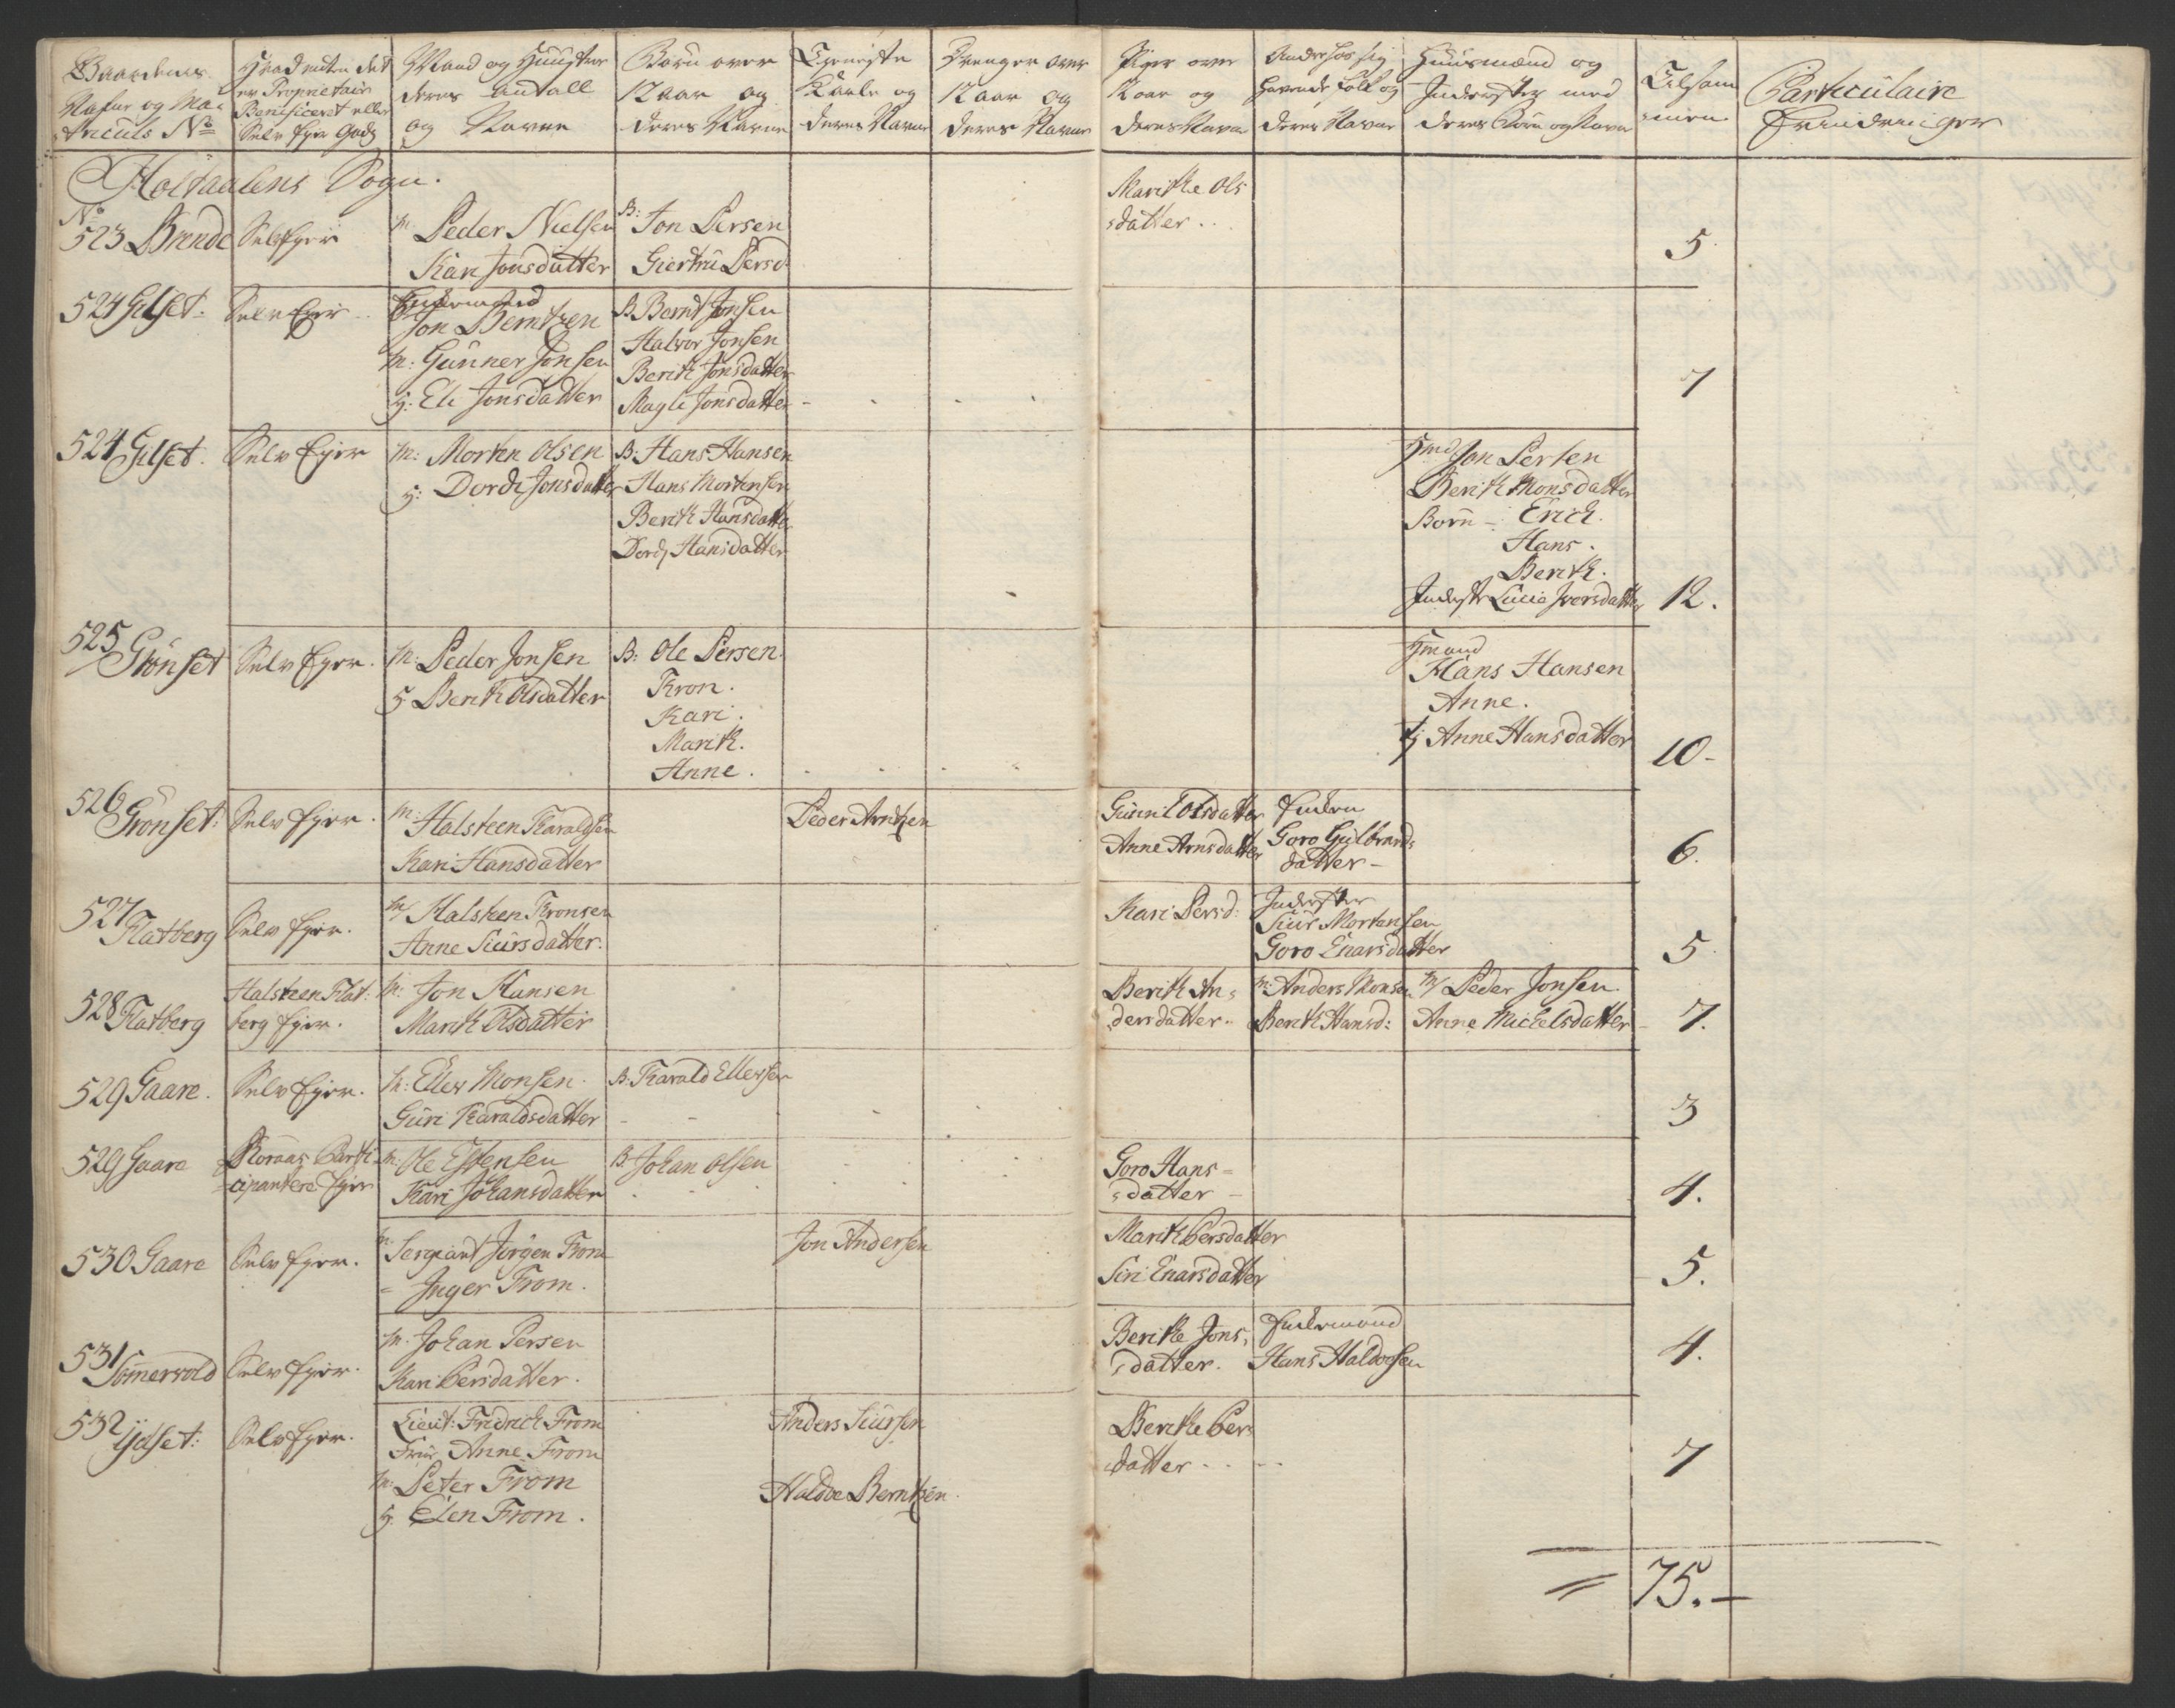 Gaardenes Nafne og Ma-
triculs No
Hvad enten det
er Proprietair
Benificeret eller
Selv Ejer Gods
Mand og Hustrue
deres Antall
og Navne
Børn over
12 aar og
deres Navne
Tieneste
Karle og
deres Navne
Drenge over
12 aar og
deres Navne
Piger over
12 aar og
deres Navne
Hos sig
havende folk og
deres Navne
Huusmænd og
Inderster med
deres Børn og Navne
Tilsam
men
Particulaire
Holtaalens Sogn.
No
523 Brende
Selv Ejer
m Peder Nielsen
Kari Jonsdatter
B: Jon Persen
Giertru Persd:
Marithe Ols
datter
5
524 Gilset.
Selv Ejer
Jon Berntzen
m: Gunner Jonsen
h: Eli Jonsdatter
B Bernt Jonsen
Halvor Jonsen
Berith Jonsdatter
Magli Jonsdatter
7
524 Gilset.
Selv Ejer
m: Morten Olsen
h: Dordi Jonsdatter
B: Hans Hansen
Hans Mortensen
Berith Hansdatter
Dordj Hansdatter
Hmd Jon Persen
Berith Monsdatter
Børn - Erich.
Hans.
Berith.
Inderste Lucia Iversdatter
12.
525 Grønset
Selv Ejer.
m: Peder Jonsen
h Berith Olsdatter
B: Ole Persen
Tron.
Kari.
Marith.
Anne.
Hmand
Hans Hansen
Anne.
Anne Hansdatter
10-
526 Grønset:
Selv Ejer.
m: Halsteen Haraldsen
Kari Hansdatter
Peder Arntzen
Gunnil Olsdatter
Anne Arnsdatter
Enken
Goro Gulbrands
datter -
6.
527 Flatberg
Selv Ejer.
m/ Halsteen Tronsen
Anne Siursdatter.
Kari Persd:
Inderster
Siur Mortensen
Goro Enarsdatter
5
528 Flatberg
Halsteen Flat:
berg Ejer.
m: Jon Hansen
Marith Olsdatter
Berith An-
dersdatter.
m: Anders Monsen
Berith Hansd:
m/ Peder Jonsen
Anne Michelsdatter
7.
529 Gaare.
Selv Ejer.
m: Eller Monsen.
Guri Haraldsdatter
B. Harald Ellersen
3
529 Gaare
Roraas Parti
cipantere Ejer
m: Ole Estensen
Kari Johansdatter
B: Johan Olsen
Goro Hans=
datter -
4.
530 Gaare
Selv Ejer.
m: Sergeant Jørgen From
- Inger From.
Jon Andersen
Marith Persdatter
Siri Enarsdatter
5.
531 Sommervold
Selv Ejer.
m. Johan Persen
Kari Persdatter.
Berithe Jons-
datter.
Enkemand
Hans Haldorsen
4.
532
Selv Ejer.
Lieut: Fridrich From
Frue Anne From
m: Peter From
h. Elen From.
Anders Siursen
Haldoe Berntzen.
Berithe Pers
datter
7
= 75.-